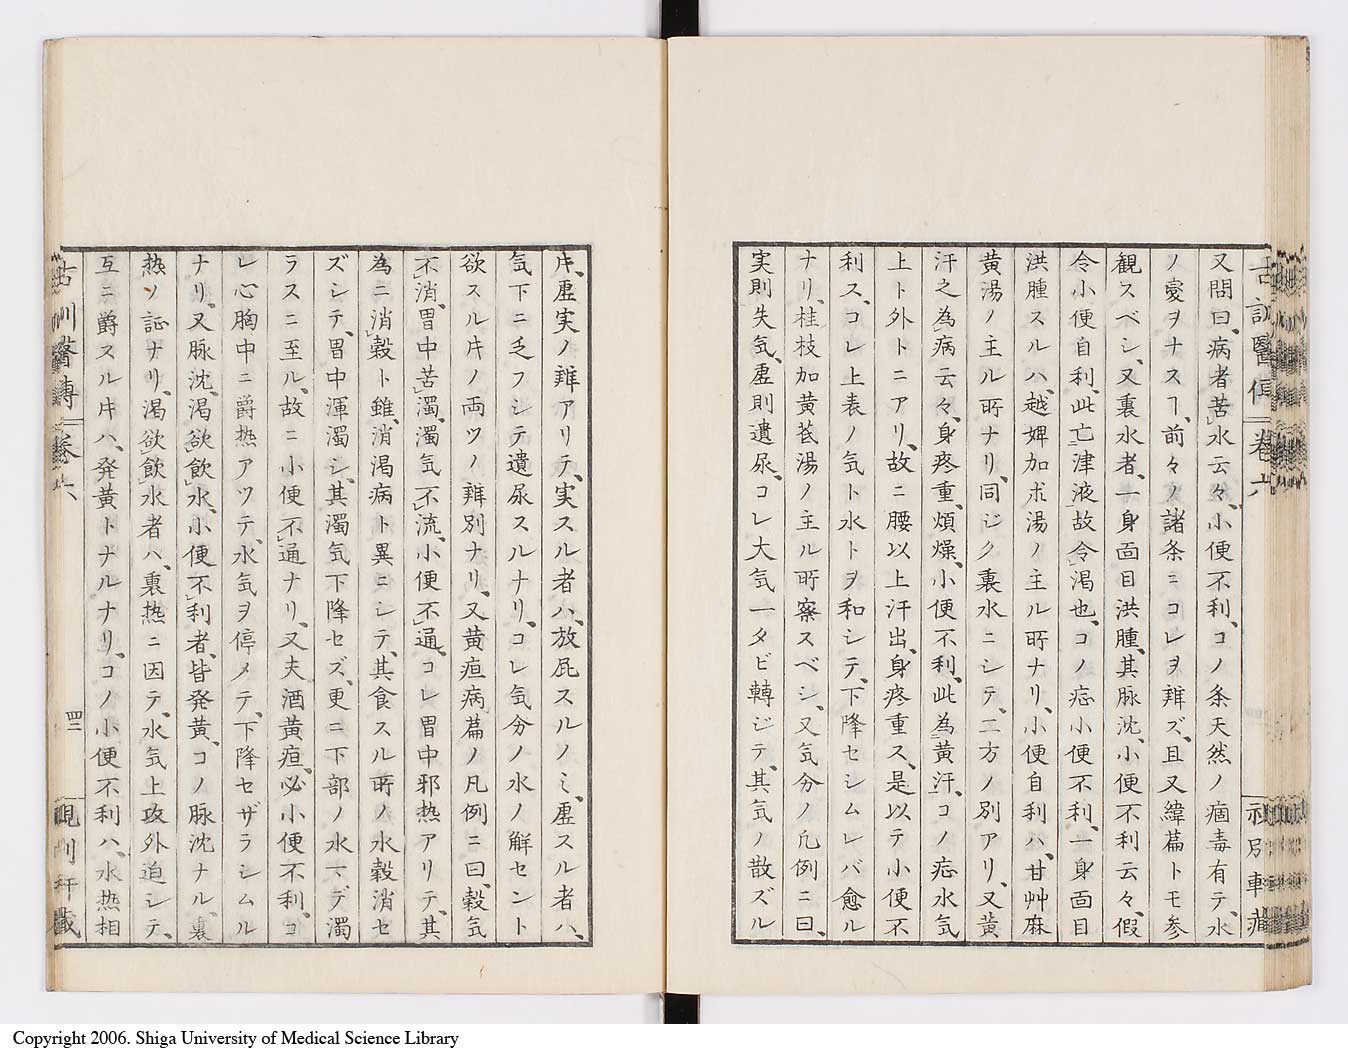 古訓醫傳 卷六
又問曰、病者苦水云々、小便不利、コノ条天然ノ痼毒有テ、水
ノ変ヲナスヿ、前々ノ諸条ニコレヲ辨ズ、且又緯篇トモ参
観スベシ、又裏水者、一身面目洪腫、其脉沈、小便不利云々、假
令小便自利、此亡津液、故令渇也、コノ症小便不利、一身面目
洪腫スルハ、越婢加朮湯ノ主ル所ナリ、小便自利ハ、甘艸麻
黄湯ノ主ル所ナリ、同ジク裏水ニシテ、二方ノ別アリ、又黄
汗之為病云々、身疼重、煩燥、小便不利、此為黄汗、コノ症水気
上ト外トニアリ、故ニ腰以上汗出、身疼重ス、是以テ小便不
利ス、コレ上表ノ気ト水トヲ和シテ、下降セシムレバ愈ル
ナリ、桂枝加黄芪湯ノ主ル所察スベシ、又気分ノ凡例ニ曰、
実則失気、虚則遺尿、コレ大気一タビ轉ジテ、其気ノ散ズル
㐧、虚実ノ辨アリテ、実スル者ハ、放屁スルノミ、虚スル者ハ、
気下ニ乏フシテ遺尿スルナリ、コレ気分ノ水ノ解セント
欲スル𪜈ノ両ツノ辨別ナリ、又黄疸病篇ノ凡例ニ曰、穀気
不消、胃中苦濁、濁気不流、小便不通、コレ胃中邪熱アリテ、其
為ニ消穀ト雖、消渇病ト異ニシテ、其食スル所ノ水穀消セ
ズシテ、胃中渾濁シ、其濁気下降セズ、更ニ下部ノ水マデ濁
ラスニ至ル、故ニ小便不通ナリ、又夫酒黄疸、必小便不利、コ
レ心胸中ニ爵熱アツテ、水気ヲ停メテ、下降セザラシムル
ナリ、又脉沈、渇欲飲水、小便不利者、皆発黄、コノ脉沈ナル、裏
熱ノ証ナリ、渇欲飲水者ハ、裏熱ニ因テ、水気上攻外迫シテ、
互ニ爵スル𪜈ハ、発黄トナルナリ、コノ小便不利ハ、水熱相
古訓醫傳 卷六 四三
Copyright 2006. Shiga University of Medical Science Library